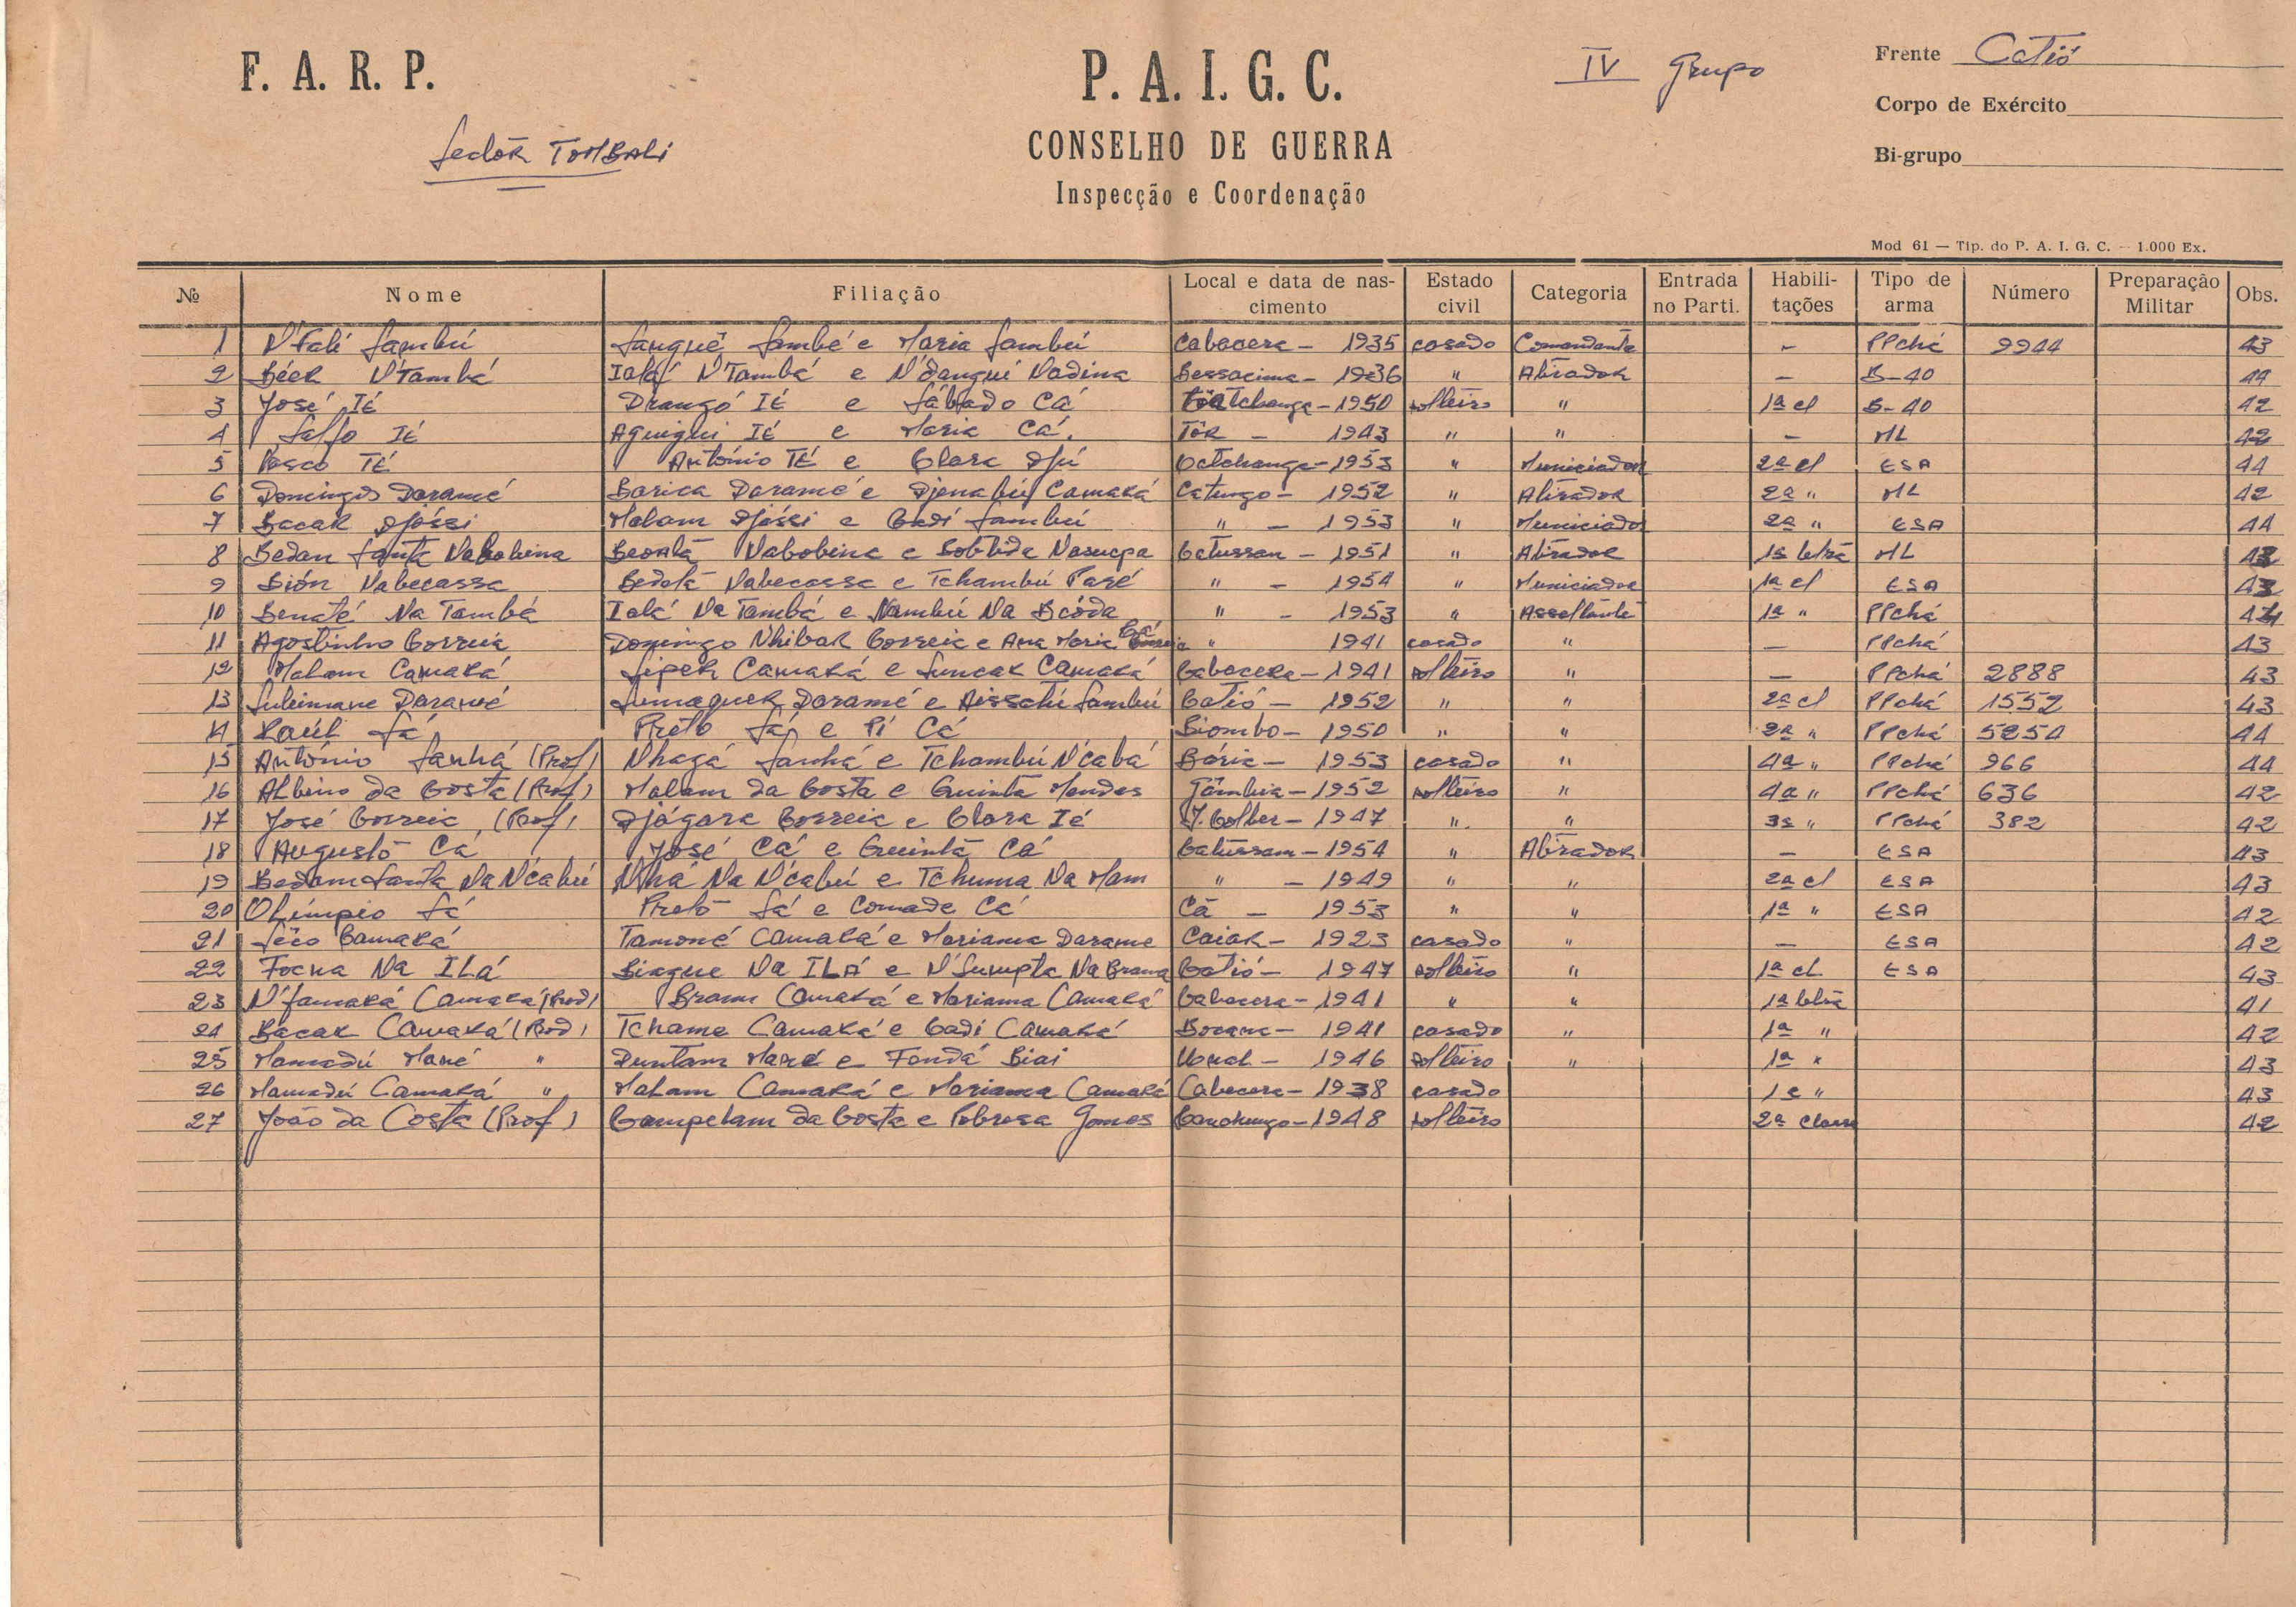 F. A. R. P.
Sector TOMBALi
P. A. I. G. C.
CONSELHO DE GUERRA
Inspecção e Coordenação
IV Grupo
Frente Catió
Corpo de Exército
Bi-grupo
Mod 61 — Tip. do P. A. I. G. C. — 1.000 Ex.
№ Nome Filiação Local e data de nascimento Estado civil Categoria Entrada no Parti. Habilitações Tipo de arma Número Preparação Militar Obs.
1 N'Fali Sambú Sambé e Maria Sambú Cabacera — 1935 casado Comandante — PPchá 9944 43
2 N'Tambá Ialá N'Tambá e N'dangui Nadina Bessacima — 1936 " Atirador — B-40 44
3 José Ié Ié e Sábado Cá — 1950 solteiro " 1ª cl B-40 42
4 Ié Ié e Maria Cá Tôr — 1943 " " — ML 42
5 Vasco Té António Té e Clara Catchanga — 1953 " Municiador 2ª cl ESA 44
6 Domingos Daramé Daramé e Djenabú Camará Catungo — 1952 " Atirador 2ª " ML 42
7 Bacar Djássi Malam Djássi e Cadi Sambú " — 1953 " Municiador 2ª " ESA 44
8 Bedan Santa Nabobina Nabobina e Catussam — 1951 " Atirador 1ª letra ML
9 Bión Nabecassa Bedetá Nabecassa e Tchambú Paré " — 1954 " Municiador 1ª cl ESA 43
10 Benaté Na Tambá Ialá Na Tambá e Nambú Na Bcóda " — 1953 " Assaltante 1ª " PPchá
11 Agostinho Correia Domingo Nhibak Correia e Ana Maria Cá " 1941 casado " — PPchá 43
12 Malam Camará Camará e Suncar Camará Cabacera — 1941 solteiro " — PPchá 2888 43
13 Suleimane Daramé Daramé e Sambú Catió — 1952 " " 2ª cl PPchá 1552 43
14 Raúl Sá Preto Sá e Pi Cá Biombo — 1950 " " 2ª " PPchá 5254 44
15 António Sanhá (Prof) Nhagá Sanhá e Tchambú N'cabá Bária — 1953 casado " 4ª " PPchá 966 44
16 Albino da Costa (Prof) Malam da Costa e Quinta Mendes Gâmbia — 1952 solteiro " 4ª " PPchá 636 42
17 José Correia (Prof) Djágara Correia e Clara Ié — 1947 " " 3ª " PPchá 382 42
18 Augusto Cá José Cá e Quintã Cá Catússam — 1954 " Atirador — ESA 43
19 Bedam Santa Na N'cabú Nhá Na N'cabú e Tchuma Na Mam " — 1949 " " 2ª cl ESA 43
20 Olímpio Sá Preto Sá e Comade Cá Cã — 1953 " " 1ª " ESA 42
21 Séco Camará Tamoné Camará e Mariama Darame Caiar — 1923 casado " — ESA 42
22 Focna Na ILá Biague Na ILÁ e N'Sumpta Na Brama Catió — 1947 solteiro " 1ª cl ESA 43
23 N'famará Camará (Prod) Bram Camará e Mariama Camará Cabacera — 1941 " " 1ª letra 41
24 Bacar Camará (Prod) Tchame Camará e Cadi Camará — 1941 casado " 1ª " 42
25 Mamadú Mané " Duntam Mané e Fendá Biai — 1946 solteiro " 1ª " 43
26 Mamadú Camará " Malam Camará e Mariama Camará Cabacera — 1938 casado 1ª " 43
27 João da Costa (Prof) Campelam da Costa e Gomes Canchungo — 1948 solteiro 2ª classe 42